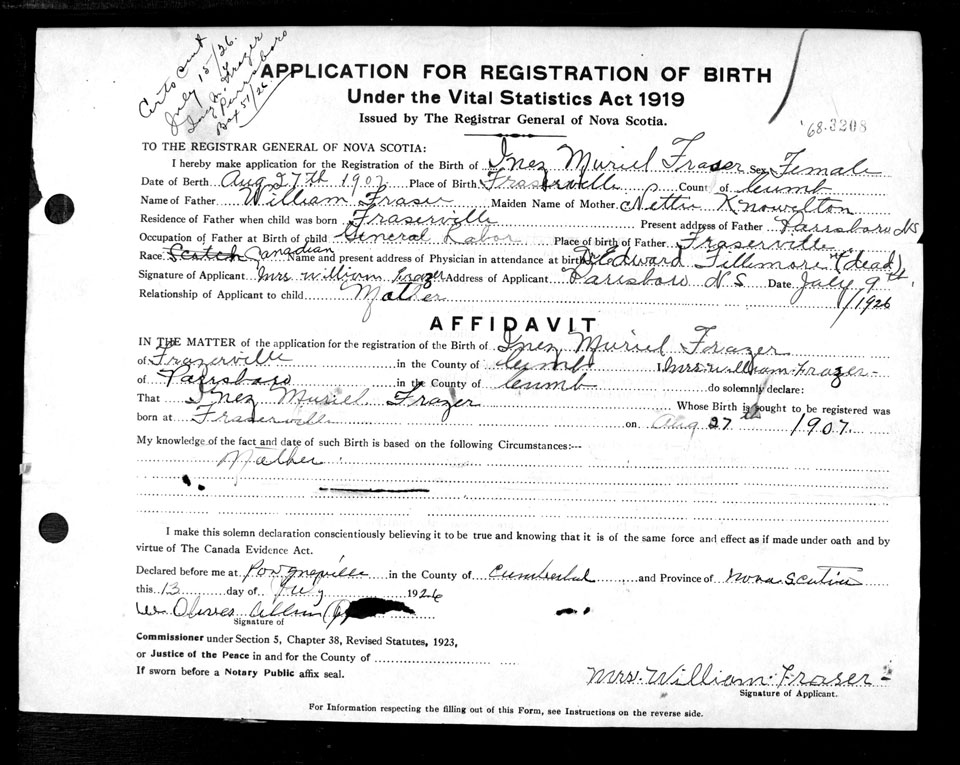 Certs Cent
July 15/26.
Inez M. Frazer
Parrsboro
Box 51/26.
APPLICATION FOR REGISTRATION OF BIRTH
Under the Vital Statistics Act 1919
Issued by The Registrar General of Nova Scotia.
'68-3208
TO THE REGISTRAR GENERAL OF NOVA SCOTIA:
I hereby make application for the Registration of the Birth of Inez Muriel Fraser Sex Female
Date of Berth Aug 27th 1907 Place of Birth Fraserville County of Cumb
Name of Father William Fraser Maiden Name of Mother Nettie Knowelton
Residence of Father when child was born Fraserville Present address of Father Parrsboro NS
Occupation of Father at Birth of child General Labor Place of birth of Father Fraserville
Race Scotch Canadian Name and present address of Physician in attendance at birth Dr Edward Fillimore (dead)
Signature of Applicant Mrs William Frazer Address of Applicant Parrsboro N S Date July 9th
Relationship of Applicant to child Mother /1926
AFFIDAVIT
IN THE MATTER of the application for the registration of the Birth of Inez Muriel Frazer
of Frazerville in the County of Cumb I Mrs. William Frazer-
of Parrsboro in the County of Cumb do solemnly declare:
That Inez Muriel Frazer Whose Birth is sought to be registered was
born at Fraserville on Aug 27th 1907.
My knowledge of the fact and date of such Birth is based on the following Circumstances:—
Mother
I make this solemn declaration conscientiously believing it to be true and knowing that it is of the same force and effect as if made under oath and by
virtue of The Canada Evidence Act.
Declared before me at in the County of Cumberland and Province of Nova Scotia
this 13 day of July 1926
W Oliver
Signature of
Commissioner under Section 5, Chapter 38, Revised Statutes, 1923,
or Justice of the Peace in and for the County of
If sworn before a Notary Public affix seal.
Mrs. William Fraser-
Signature of Applicant.
For Information respecting the filling out of this Form, see Instructions on the reverse side.